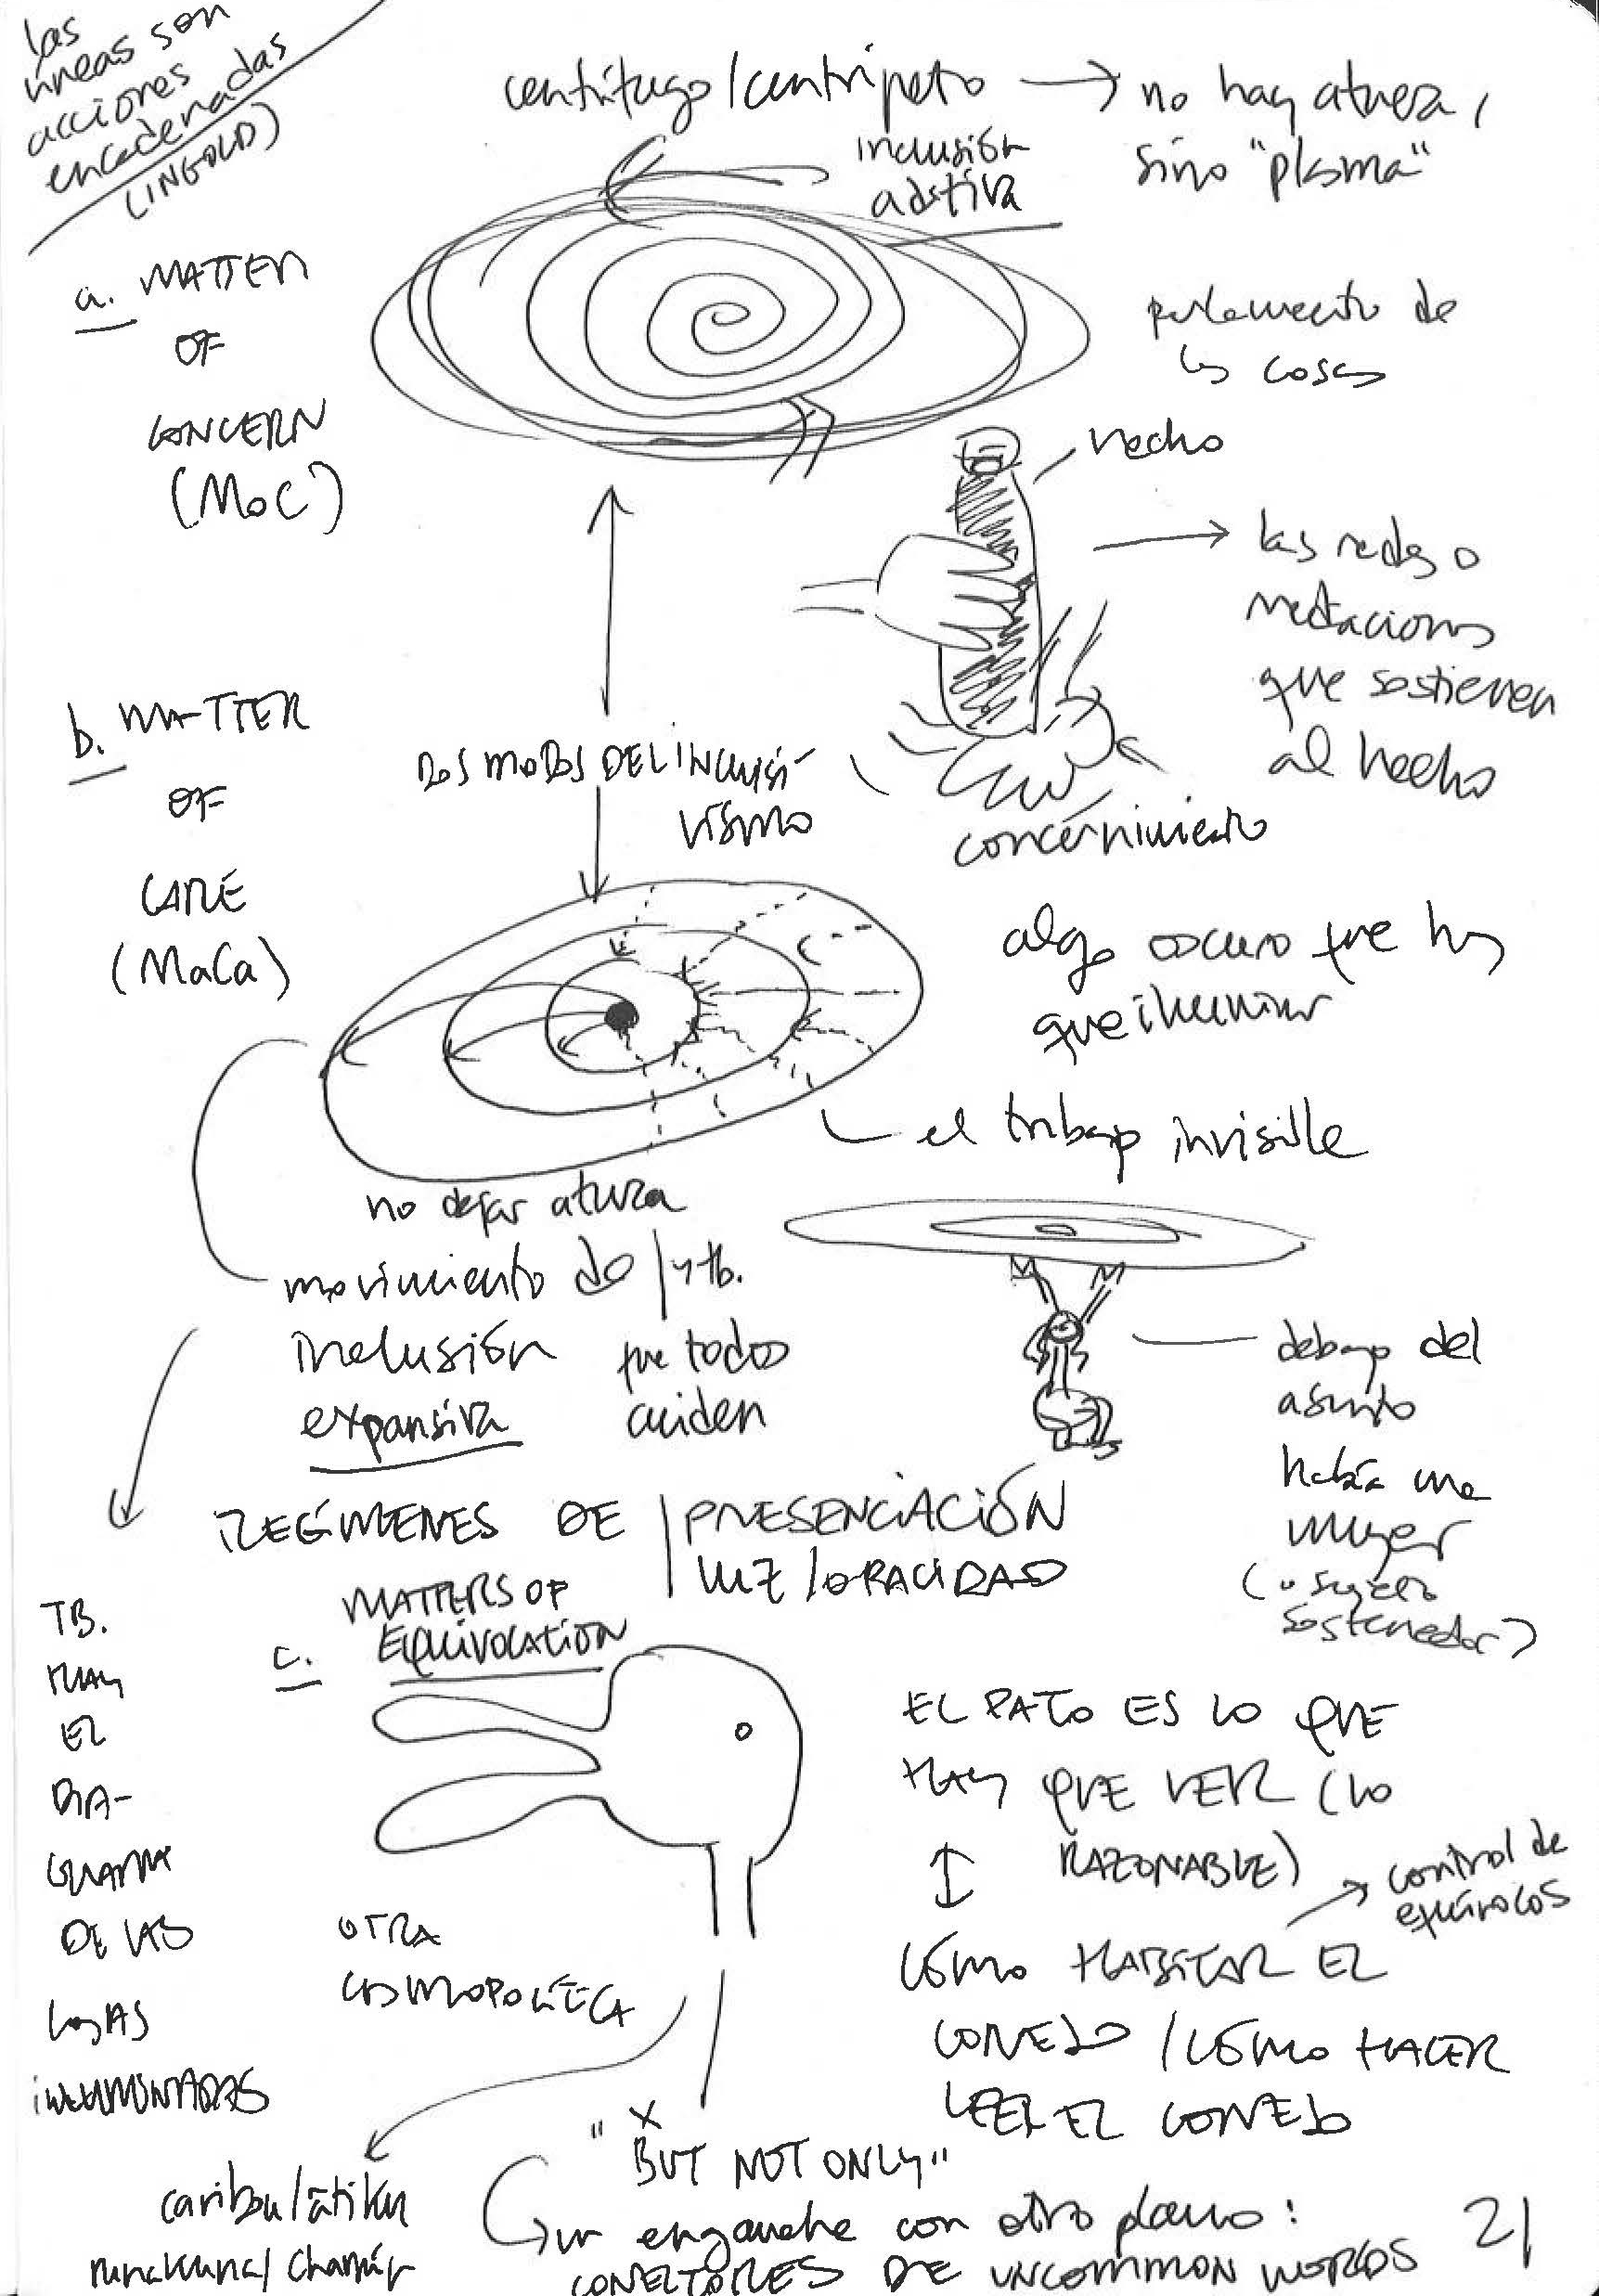 las
líneas son
acciones
encadenadas
(INGOLD)
centrífugo/centrípeto → no hay afuera,
sino "plasma"
inclusión
aditiva
a. MATTER
OF
CONCERN
(MoC)
parlamento de
las cosas
hecho
las redes o
mediaciones
que sostienen
al hecho
concernimiento
b. MATTER
OF
CARE
(MaCa)
DOS MODOS DEL INCLUSI-
VISMO
algo oscuro que hay
que iluminar
el trabajo invisible
no dejar afuera
movimiento de / y tb.
inclusión que todos
expansiva cuiden
debajo del
asunto
había una
mujer
(o sujeto
sostenedor)
REGÍMENES DE / PRESENCIACIÓN
LUZ/OPACIDAD
TB.
HAY
EL
DIA-
GRAMA
DE LAS
COSAS
ILUMINADAS
c. MATTERS OF
EQUIVOCATION
EL PATO ES LO QUE
HAY QUE VER (LO
RAZONABLE)
control de
equívocos
CÓMO HABITAR EL
CONEJO / CÓMO HACER
LEER EL CONEJO
OTRA
COSMOPOLÍTICA
"X
BUT NOT ONLY"
un enganche con otro plano:
CONECTORES DE UNCOMMON WORLDS
caribou/atîku
runakuna/
21